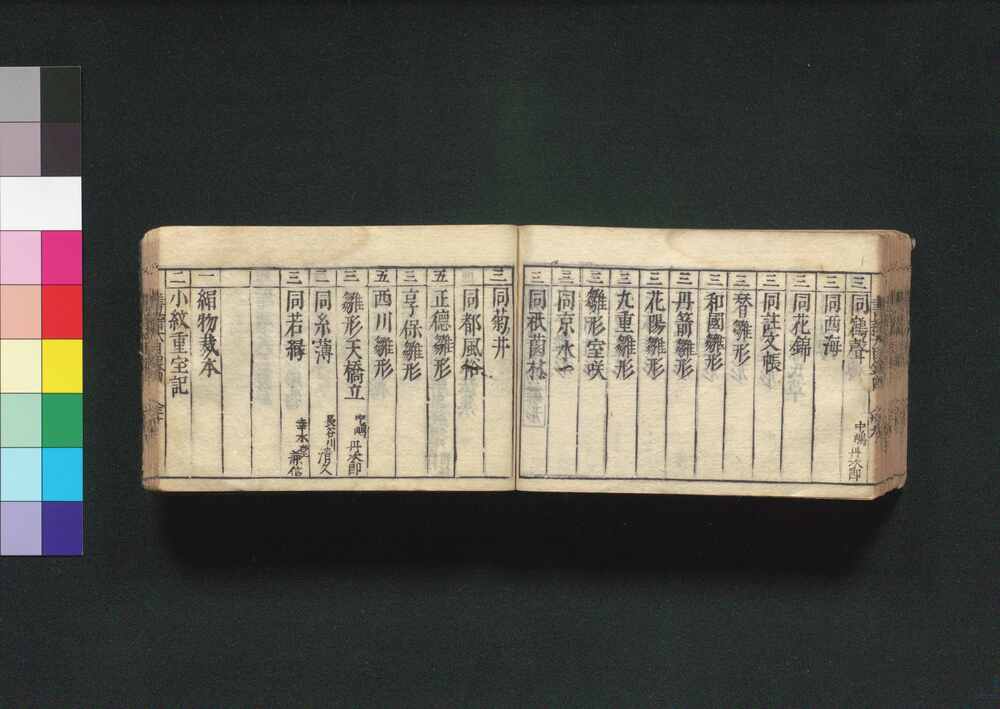 三 同鶴聲 中嶋丹次郎
三 同西海
三 同花錦
三 同註文帳
三 音雛形
三 和國雛形
三 丹前雛形
三 花陽雛形
三 九重雛形
三 雛形室咲
三 同京水
三 同祇園林
三 同菊井
同都風俗
五 正德雛形
三 享保雛形
五 西川雛形
三 雛形天橋立 中嶋丹次郎
二 同糸薄 長谷川清久
三 同若緑
一 絹物裁本
二 小紋重宝記